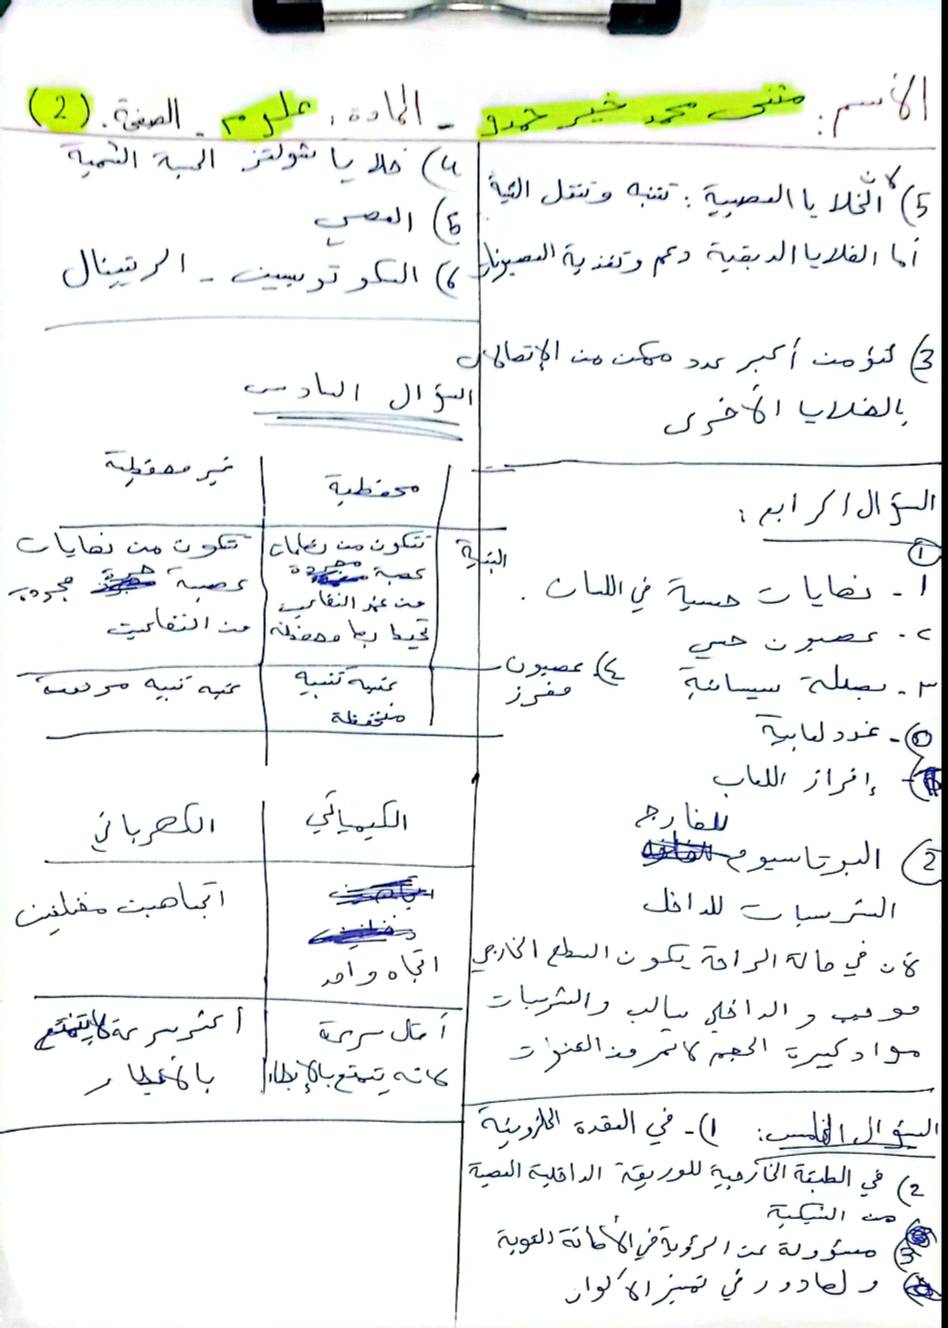 الأسم: مثنى محمد خير حمدو - المادة: علوم - الصفحة. (2)
5) لأن الخلايا العصبية: تتنبه وتنقل التنبيه
أما الخلايا الدبقية دعم وتغذية العصبونات
3) لتؤمن أكبر عدد ممكن من الإتصالات
بالخلايا الأخرى
السؤال الرابع:
1
1- نهايات حسية في اللسان.
2- عصبون حسي
3- بصلة سيسائية 4) عصبون مفرز
5- غدد لعابية
- إفراز اللعاب
2) البوتاسيوم للخارج
الشرسبات للداخل
لأن في حالة الراحة يكون السطح الخارجي
موجب والداخلي سالب والشرسبات
مواد كبيرة الحجم لا تمر من القنوات
السؤال الخامس: 1)- في العقدة الحلزونية
2) في الطبقة الخارجية للوريقة الداخلية العصبية
من الشبكية
3) مسؤولة عن الرؤية في الأضائة القوية
ولها دور في تمييز الألوان
4) خلايا شولتز الحبة الشمية
5) العصي
6) السكوتوبسين - الريتينال
السؤال السادس
محفظية | غير محفظية
البنية | تتكون من نهايات عصبية مجردة من غمد النخاعين تحيط بها محفظة | تتكون من نهايات عصبية حرة مجردة من النخاعين
عتبة تنبيه منخفضة | عتبة تنبيه مرتفعة
الكيميائي | الكهربائي
اتجاه واحد | اتجاهين مختلفين
أقل سرعة | أكثر سرعة لا يتمتع
لأنه يتمتع بالإبطاء | بالأبطاء